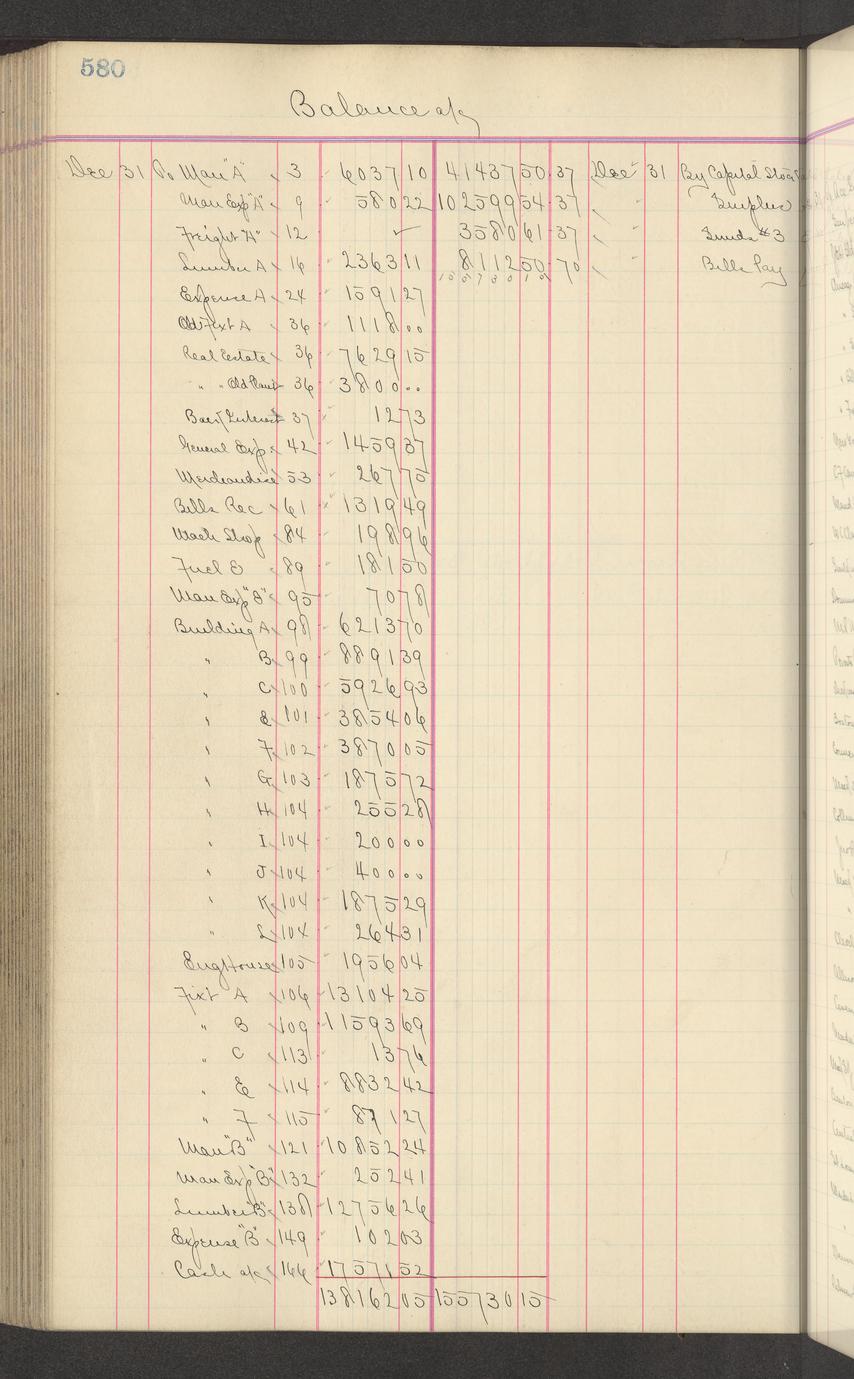 580
Balance a/c
Dec 31 To Man "A" 3 6037 10 41437 50 37 Dec 31 By Capital Stock
Man Exp "A" 9 580 22 102599 54 37 " " Surplus
Freight "A" 12 ✓ 3580 61 37 " " Funds #3
Lumber A 16 2363 11 8112 50 70 " " Bills Pay
Expense A 24 1591 27
Old Fixt A 36 1118 00
Real Estate 36 7629 15
" " Old Plant 36 3800 00
Baer Interest 37 12 73
General Exp 42 1459 37
Merchandise 53 267 75
Bills Rec 61 1319 49
Mach Shop 84 198 96
Fuel & 89 181 50
Man Exp "B" 95 70 78
Building A 98 6213 70
" B 99 8891 39
" C 100 5926 93
" E 101 3854 06
" F 102 3870 05
" G 103 1875 72
" H 104 255 28
" I 104 200 00
" J 104 400 00
" K 104 1875 29
" L 104 264 31
Eng House 105 1956 04
Fixt A 106 13104 25
" B 109 11593 69
" C 113 13 76
" E 114 8832 42
" F 115 871 27
Man "B" 121 10852 24
Man Exp "B" 132 252 41
Lumber "B" 138 12756 26
Expense "B" 149 102 03
Cash a/c 166 17571 52
138162 05 155730 15